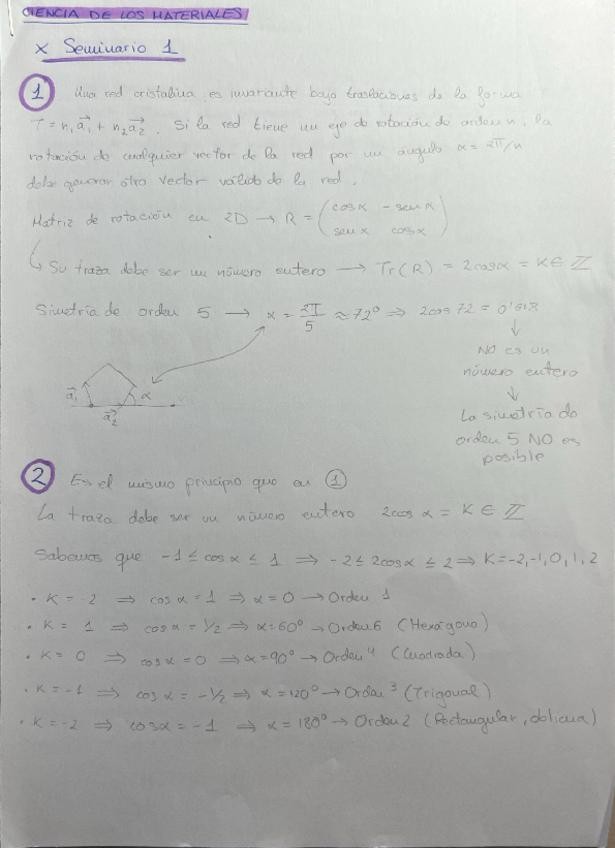 CIENCIA DE LOS MATERIALES
x Seminario 1
1 Una red cristalina es invariante bajo traslaciones de la forma
T = n₁a⃗₁ + n₂a⃗₂. Si la red tiene un eje de rotación de orden n, la
rotación de cualquier vector de la red por un ángulo α = 2π/n
debe generar otro vector válido de la red.
Matriz de rotación en 2D → R = (cosα - senα
senα cosα)
↳ Su traza debe ser un número entero → Tr(R) = 2cosα = K ∈ ℤ
Simetría de orden 5 → α = 2π/5 ≈ 72° ⇒ 2cos72 = 0'618
↓
NO es un
número entero
↓
La simetría de
orden 5 NO es
posible
a⃗₁ a⃗₂ α
2 Es el mismo principio que en ①
La traza debe ser un número entero 2cos α = K ∈ ℤ
Sabemos que -1 ≤ cosα ≤ 1 ⇒ -2 ≤ 2cosα ≤ 2 ⇒ K = -2, -1, 0, 1, 2
• K = -2 ⇒ cosα = 1 ⇒ α = 0 → Orden 1
• K = 1 ⇒ cosα = 1/2 ⇒ α = 60° → Orden 6 (Hexágono)
• K = 0 ⇒ cosα = 0 ⇒ α = 90° → Orden 4 (Cuadrada)
• K = -1 ⇒ cosα = -1/2 ⇒ α = 120° → Orden 3 (Trigonal)
• K = -2 ⇒ cosα = -1 ⇒ α = 180° → Orden 2 (Rectangular, oblicua)